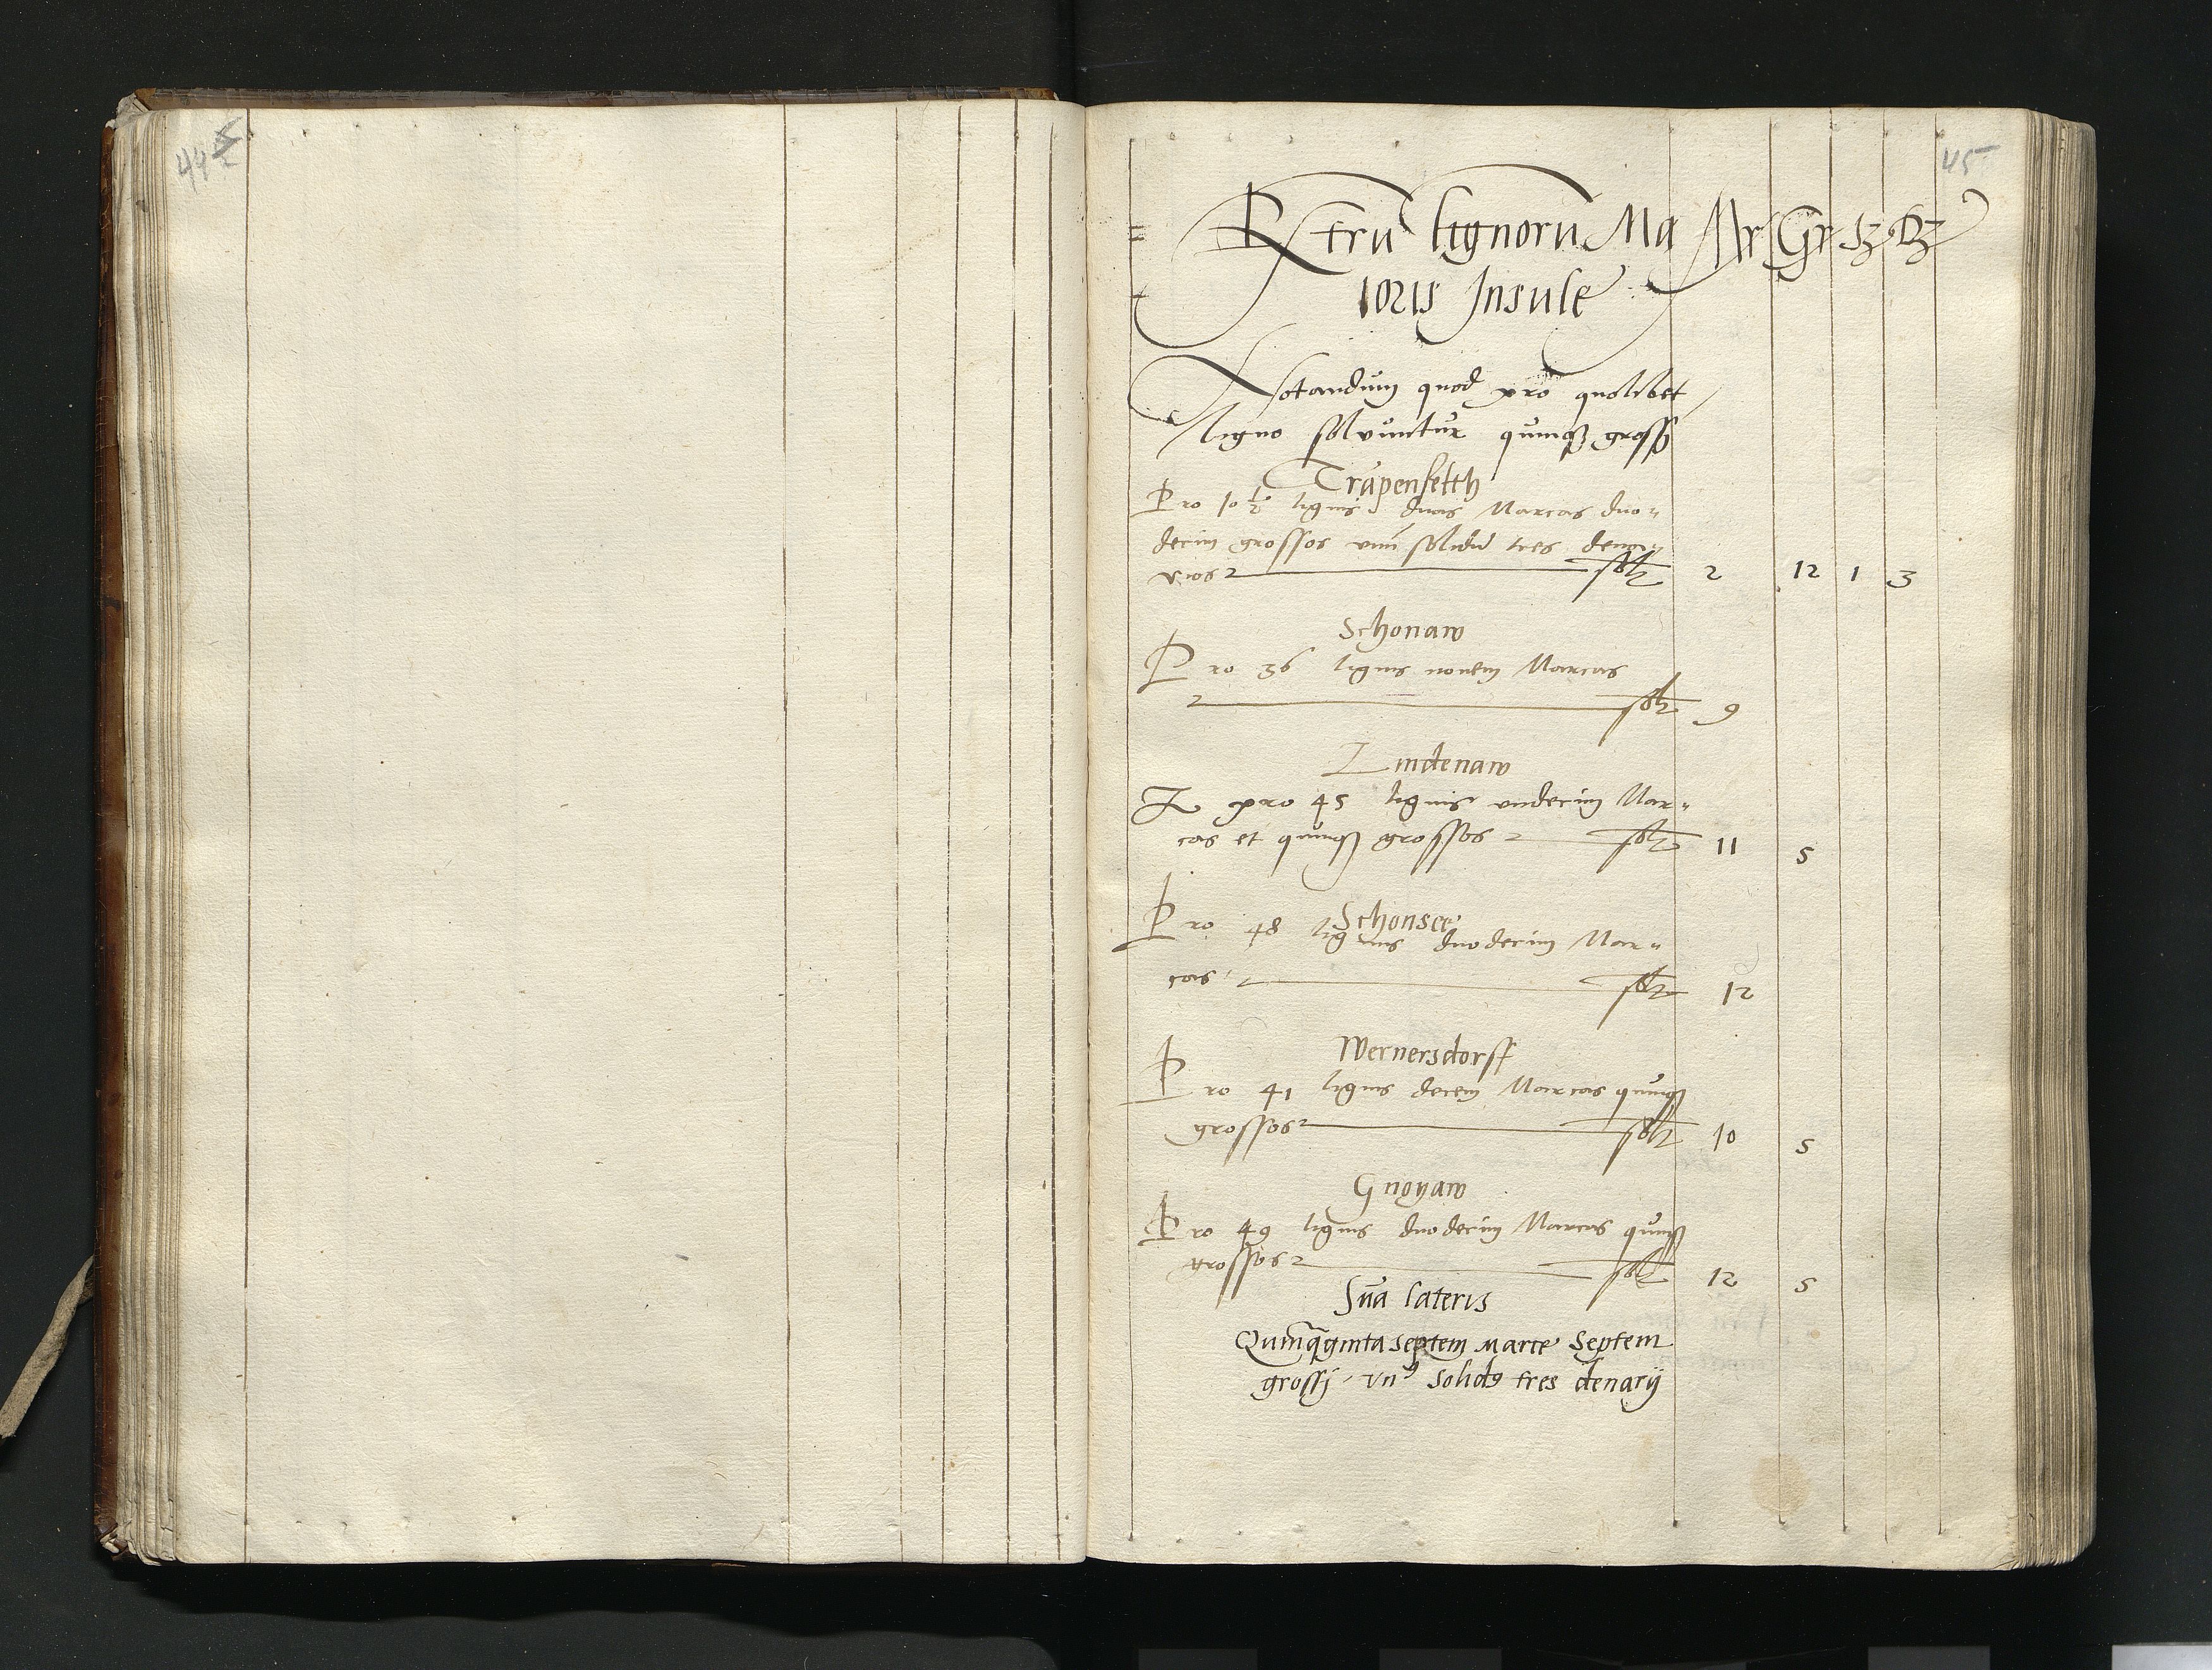 44
45
lignorū Ma Mr Gr ß
ioris Insule
Notandum quod pro quolibet
ligno solvuntur quinqꝫ grossi
Trapenfelth
Pro 10 ½ lignis duas Marcas duo„
decim grossos vnū solidū tres dena„
rios solt 2 12 1 3
Schonaw
Pro 36 lignis nouem Marcas
solt 9
Lindenaw
pro 45 lignis vndecim Mar„
cas et quinqꝫ grossos solt 11 5
Schonsee
Pro 48 lignis duodecim Mar„
cas solt 12
Wernersdorff
Pro 41 lignis decem Marcas quinqꝫ
grossos solt 10 5
Gnoyaw
Pro 49 lignis duodecim Marcas quinqꝫ
grossos solt 12 5
Sūa lateris
Quinq̄ginta septem marce Septem
grossj vnꝰ solidꝰ tres denarij